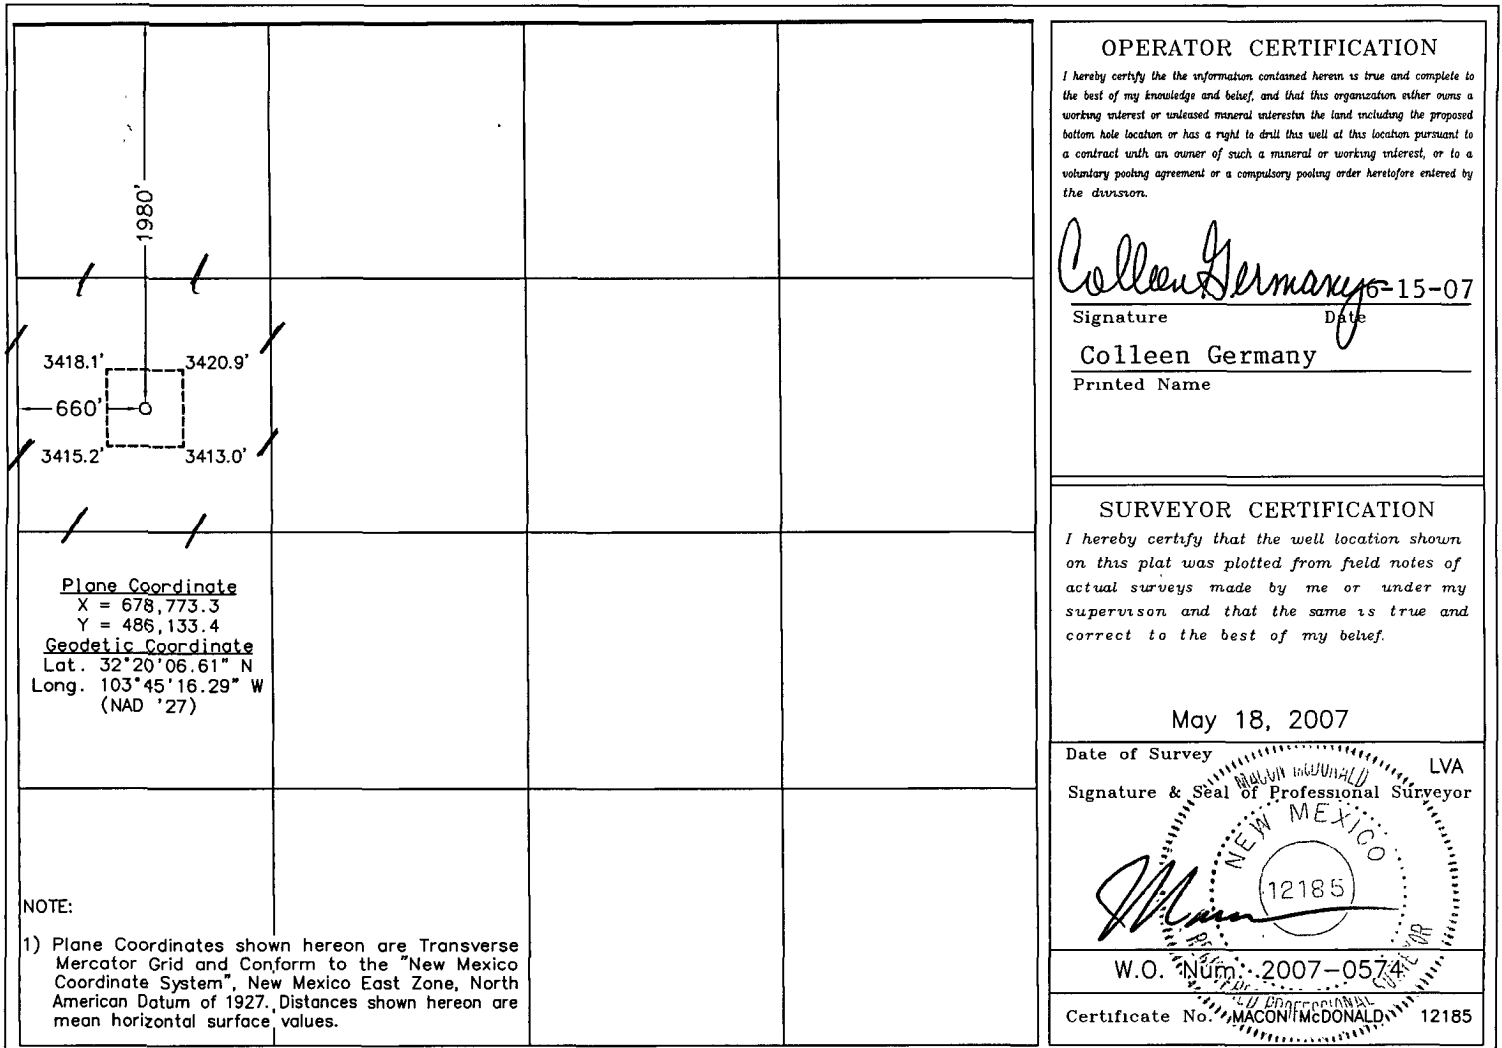 1980'
3418.1' 3420.9'
660'
3415.2' 3413.0'
Plane Coordinate
X = 678,773.3
Y = 486,133.4
Geodetic Coordinate
Lat. 32°20'06.61" N
Long. 103°45'16.29" W
(NAD '27)
NOTE:
1) Plane Coordinates shown hereon are Transverse
Mercator Grid and Conform to the "New Mexico
Coordinate System", New Mexico East Zone, North
American Datum of 1927. Distances shown hereon are
mean horizontal surface values.
OPERATOR CERTIFICATION
I hereby certify the the information contained herein is true and complete to
the best of my knowledge and belief, and that this organization either owns a
working interest or unleased mineral interestin the land including the proposed
bottom hole location or has a right to drill this well at this location pursuant to
a contract with an owner of such a mineral or working interest, or to a
voluntary pooling agreement or a compulsory pooling order heretofore entered by
the division.
Colleen Germany 6-15-07
Signature Date
Colleen Germany
Printed Name
SURVEYOR CERTIFICATION
I hereby certify that the well location shown
on this plat was plotted from field notes of
actual surveys made by me or under my
supervison and that the same is true and
correct to the best of my belief.
May 18, 2007
Date of Survey LVA
Signature & Seal of Professional Surveyor
MACON McDONALD
NEW MEXICO
12185
PROFESSIONAL
W.O. Num. 2007-0574
Certificate No. MACON McDONALD 12185